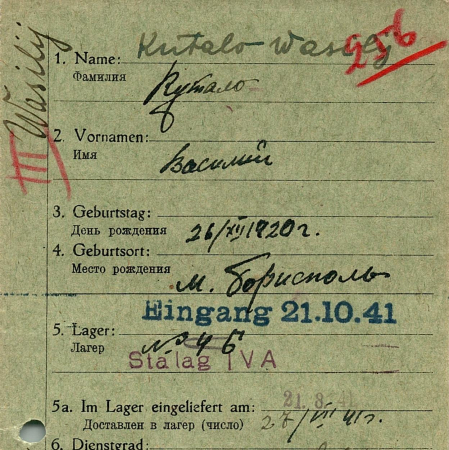 Kutalo Wasilij
256
III Wasilij
1. Name:
Фамилия
Кутало
2. Vornamen:
Имя
Василий
3. Geburtstag:
День рождения 26/XII 1920г.
4. Geburtsort:
Место рождения м. Борисполь
Eingang 21.10.41
5. Lager:
Лагер № 4 Б
Stalag IVA
5a. Im Lager eingeliefert am: 21. 8. 41
Доставлен в лагер (число) 27/VII 41г.
6. Dienstgrad: